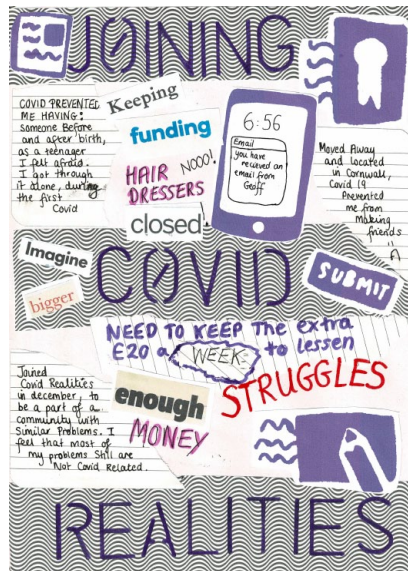 JOINING
COVID PREVENTED
ME HAVING:
Someone Before
and after birth,
as a teenager
I felt afraid.
I got through
it alone, during
the first
Covid
Keeping
funding
NOOO!
HAIR
DRESSERS
closed
6:56
Email
you have
recieved an
email from
Geoff
Moved Away
and located
in Cornwall,
Covid 19
Prevented
me from
making
friends
Imagine
bigger
COVID
SUBMIT
NEED TO KEEP The extra
£20 a WEEK to lessen
STRUGGLES
Joined
Covid Realities
in december, to
be a part of a
community with
Similar Problems. I
feel that most of
my problems Still are
Not Covid Related.
enough
MONEY
REALITIES